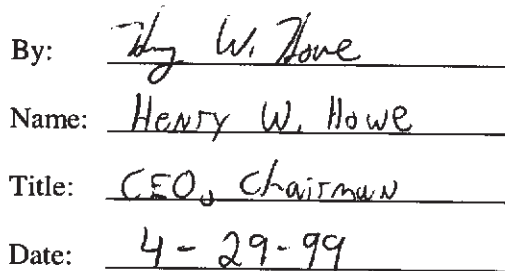 By: Henry W. Howe
Name: Henry W. Howe
Title: CEO, Chairman
Date: 4-29-99